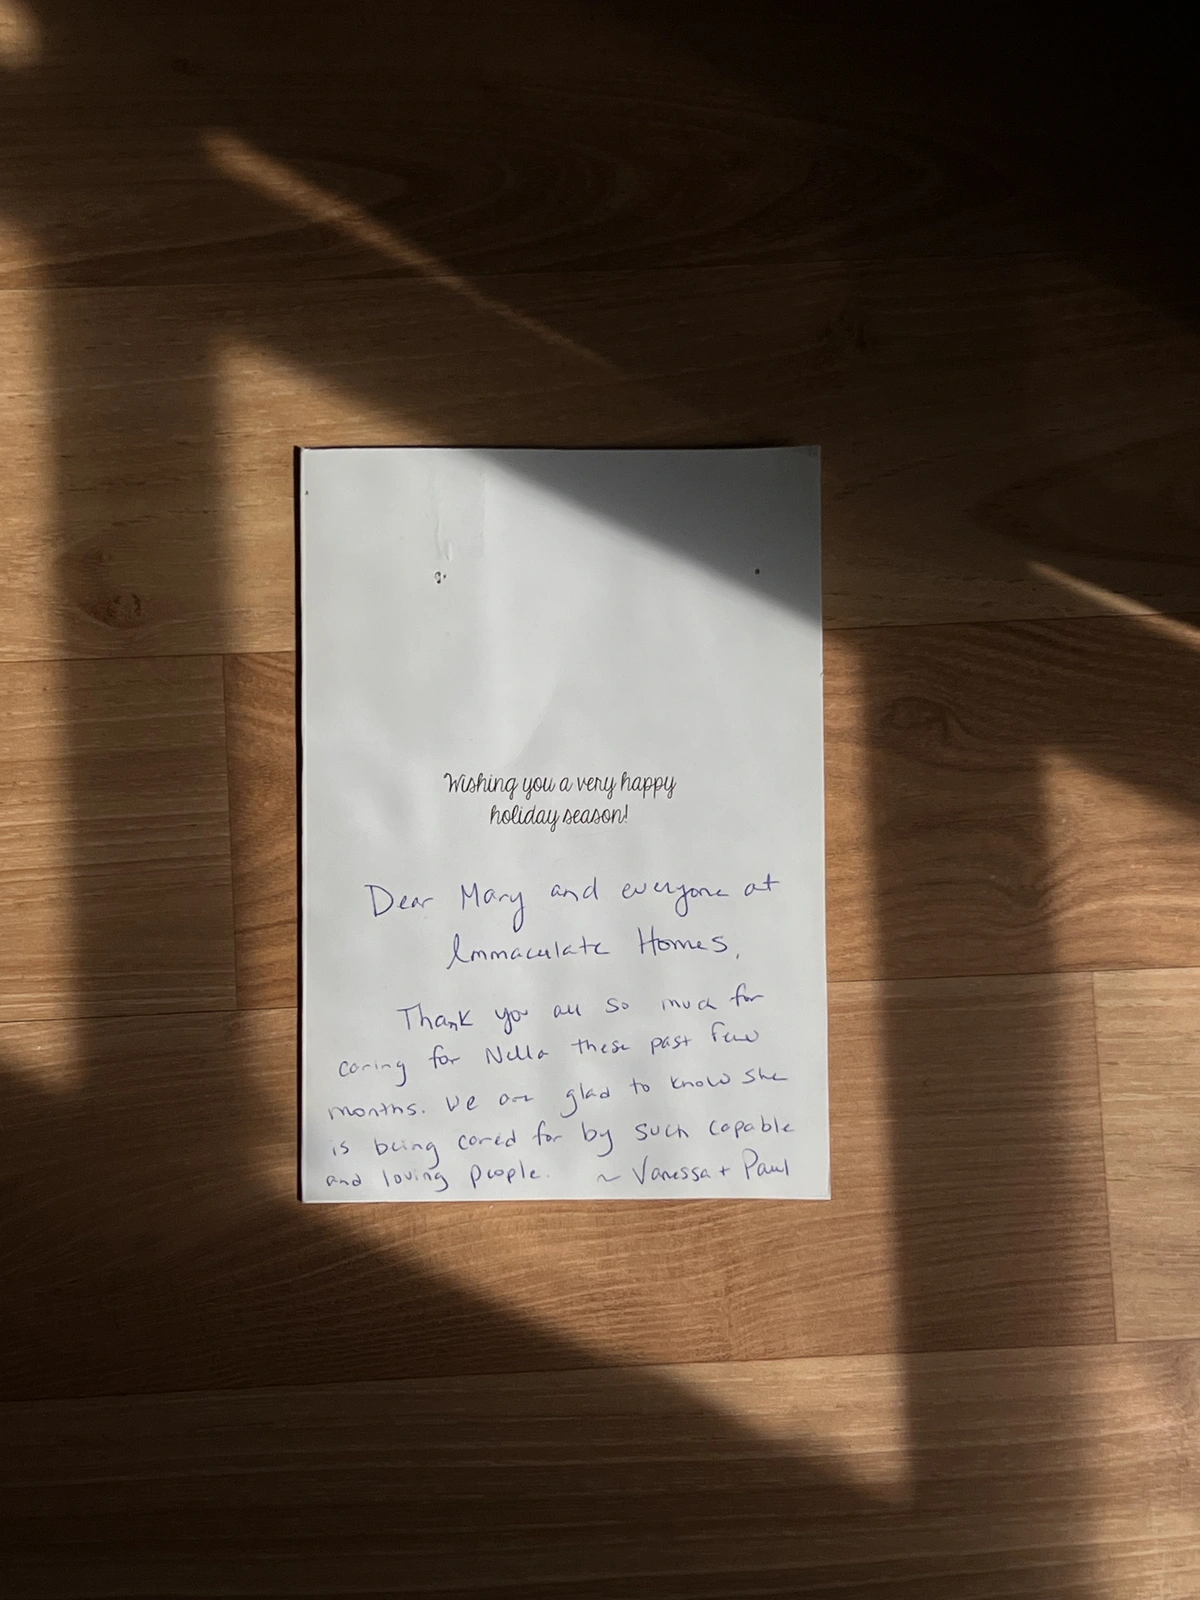 Wishing you a very happy
holiday season!
Dear Mary and everyone at
Immaculate Homes,
Thank you all so much for
caring for Nella these past few
months. We are glad to know she
is being cared for by such capable
and loving people. ~ Vanessa + Paul